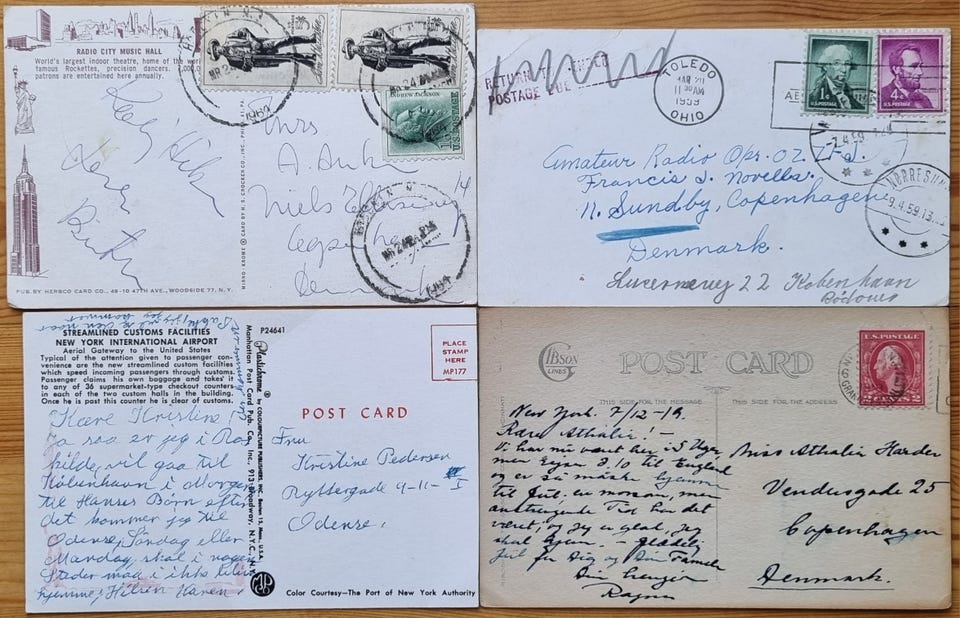 RADIO CITY MUSIC HALL
World's largest indoor theatre, home of the world
famous Rockettes, precision dancers.
patrons are entertained here annually.
Kærlig Hilsen
Mrs
A.
Niels
14
PUB. BY HERBCO CARD CO., 49-10 47TH AVE., WOODSIDE 77, N.Y.
MIRRO-KROME ® CARD BY H. S. CROCKER CO., INC.
ANDREW JACKSON
U.S. POSTAGE
1964
RETURN TO SENDER
POSTAGE DUE
TOLEDO
MAR 20
11 30 AM
1959
OHIO
1¢
U.S. POSTAGE
4¢
U.S. POSTAGE
-7.4.59
NØRRESUN
9.4.59.13
Amateur Radio Opr. OZ 7
Francis J. Novella
N. Sundby, Copenhagen
Denmark.
22 København
Rødovre
STREAMLINED CUSTOMS FACILITIES
NEW YORK INTERNATIONAL AIRPORT
Aerial Gateway to the United States
Typical of the attention given to passenger con-
venience are the new streamlined custom facilities
which speed incoming passengers through customs.
Passenger claims his own baggage and takes it
to any of 36 supermarket-type checkout counters
in each of the two custom halls in the building.
Once he is past this counter he is clear of customs.
Kære Kristine
Ja saa er jeg i Ros
kilde, vil gaa til
København i Morgen
til Hanses Børn efter
det kommer jeg til
Odense, Søndag eller
Mandag, skal i nogen
Steder maa i ikke blive
hjemme, Hilsen Karen
P24641
Plastichrome ® by COLOURPICTURE PUBLISHERS, INC. Boston 15, Mass., U.S.A.
Manhattan Post Card Pub. Co., Inc., 913 Broadway, N.Y.C.
PLACE
STAMP
HERE
MP177
POST CARD
Fru
Kristine Pedersen
9-11- I
Odense,
Color Courtesy—The Port of New York Authority
GIBSON
LINES
POST CARD
THIS SIDE FOR THE MESSAGE
THIS SIDE FOR THE ADDRESS
U.S. POSTAGE
2 CENTS 2
New York. 7/12-19.
Kære Athalie! —
Vi har nu været her i 5 Uger,
men 9/10 til England
og er så måske hjemme
til Jul. en morsom, men
anstrengende Tid har det
været, og jeg er glad, jeg
skal hjem. — glædelig
Jul for Dig og Din Familie
Din hengivne
Ragna
Miss Athalia Harder
Vendusgade 25
Copenhagen
Denmark.